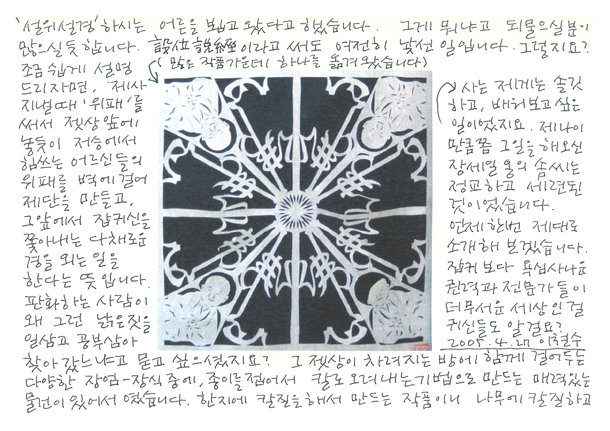 '설위설경' 하시는 어른을 뵙고 왔다고 했습니다. 그게 뭐냐고 되물으실분이
많으실듯 합니다. 設位說經이라고 써도 여전히 낯선 일입니다. 그렇지요?
(많은 작품가운데 하나를 옮겨왔습니다)
조금 쉽게 설명
드리자면, 제사
지낼때 '위패'를
써서 젯상 앞에
놓듯이 저승에서
힘쓰는 어르신들의
위패를 벽에 걸어
제단을 만들고,
그앞에서 잡귀신을
쫓아내는 다채로운
경을 외는 일을
한다는 뜻입니다.
판화하는 사람이
왜 그런 낡은짓을
일삼고 공부삼아
찾아 갔느냐고 묻고 싶으셨지요? 그 젯상이 차려지는 방에 함께 걸어두는
다양한 장엄-장식 중에, 종이를 접어서 칼로 오려내는 기법으로 만드는 매력있는
물건이 있어서 였습니다. 한지에 칼질을 해서 만드는 작품이니 나무에 칼질하고
사는 제게는 솔깃
하고, 배워보고 싶은
일이었지요. 제 나이
만큼쯤 그일을 해오신
장세일 옹의 솜씨는
정교하고 세련된
것이었습니다.
언제 한번 제대로
소개해 보겠습니다.
잡귀 보다 욕심사나운
권력과 전문가들이
더무서운 세상인 걸
귀신들도 알 걸요?
2005. 4. 20 이철수